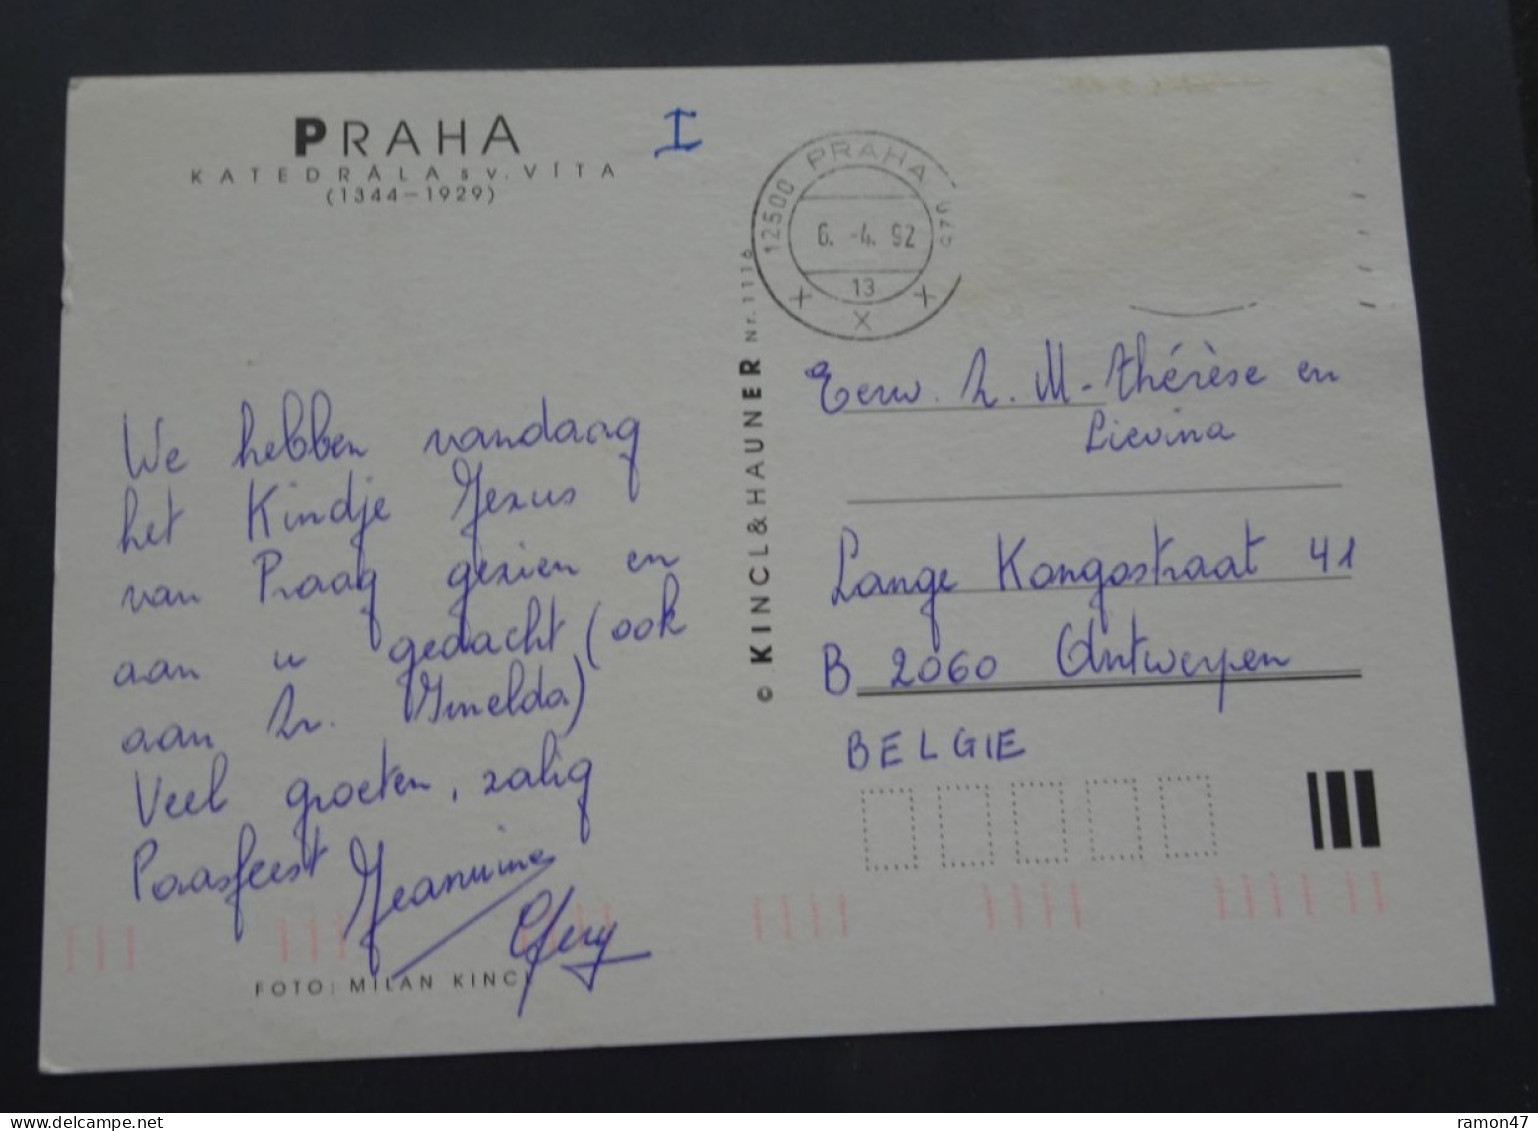 PRAHA
KATEDRÁLA sv. VÍTA
(1344–1929)
I
We hebben vandaag
het Kindje Jezus
van Praag gezien en
aan u gedacht (ook
aan Zr. Imelda)
Veel groeten, zalig
Paasfeest
Jeannine
Gery
FOTO: MILAN KINCL
© KINCL & HAUNER Nr. 1116
12500 PRAHA 025
6. -4. 92
13
Eerw. Z. M-Thérèse en
Lievina
Lange Kongostraat 41
B 2060 Antwerpen
BELGIE
www.delcampe.net
ramon47